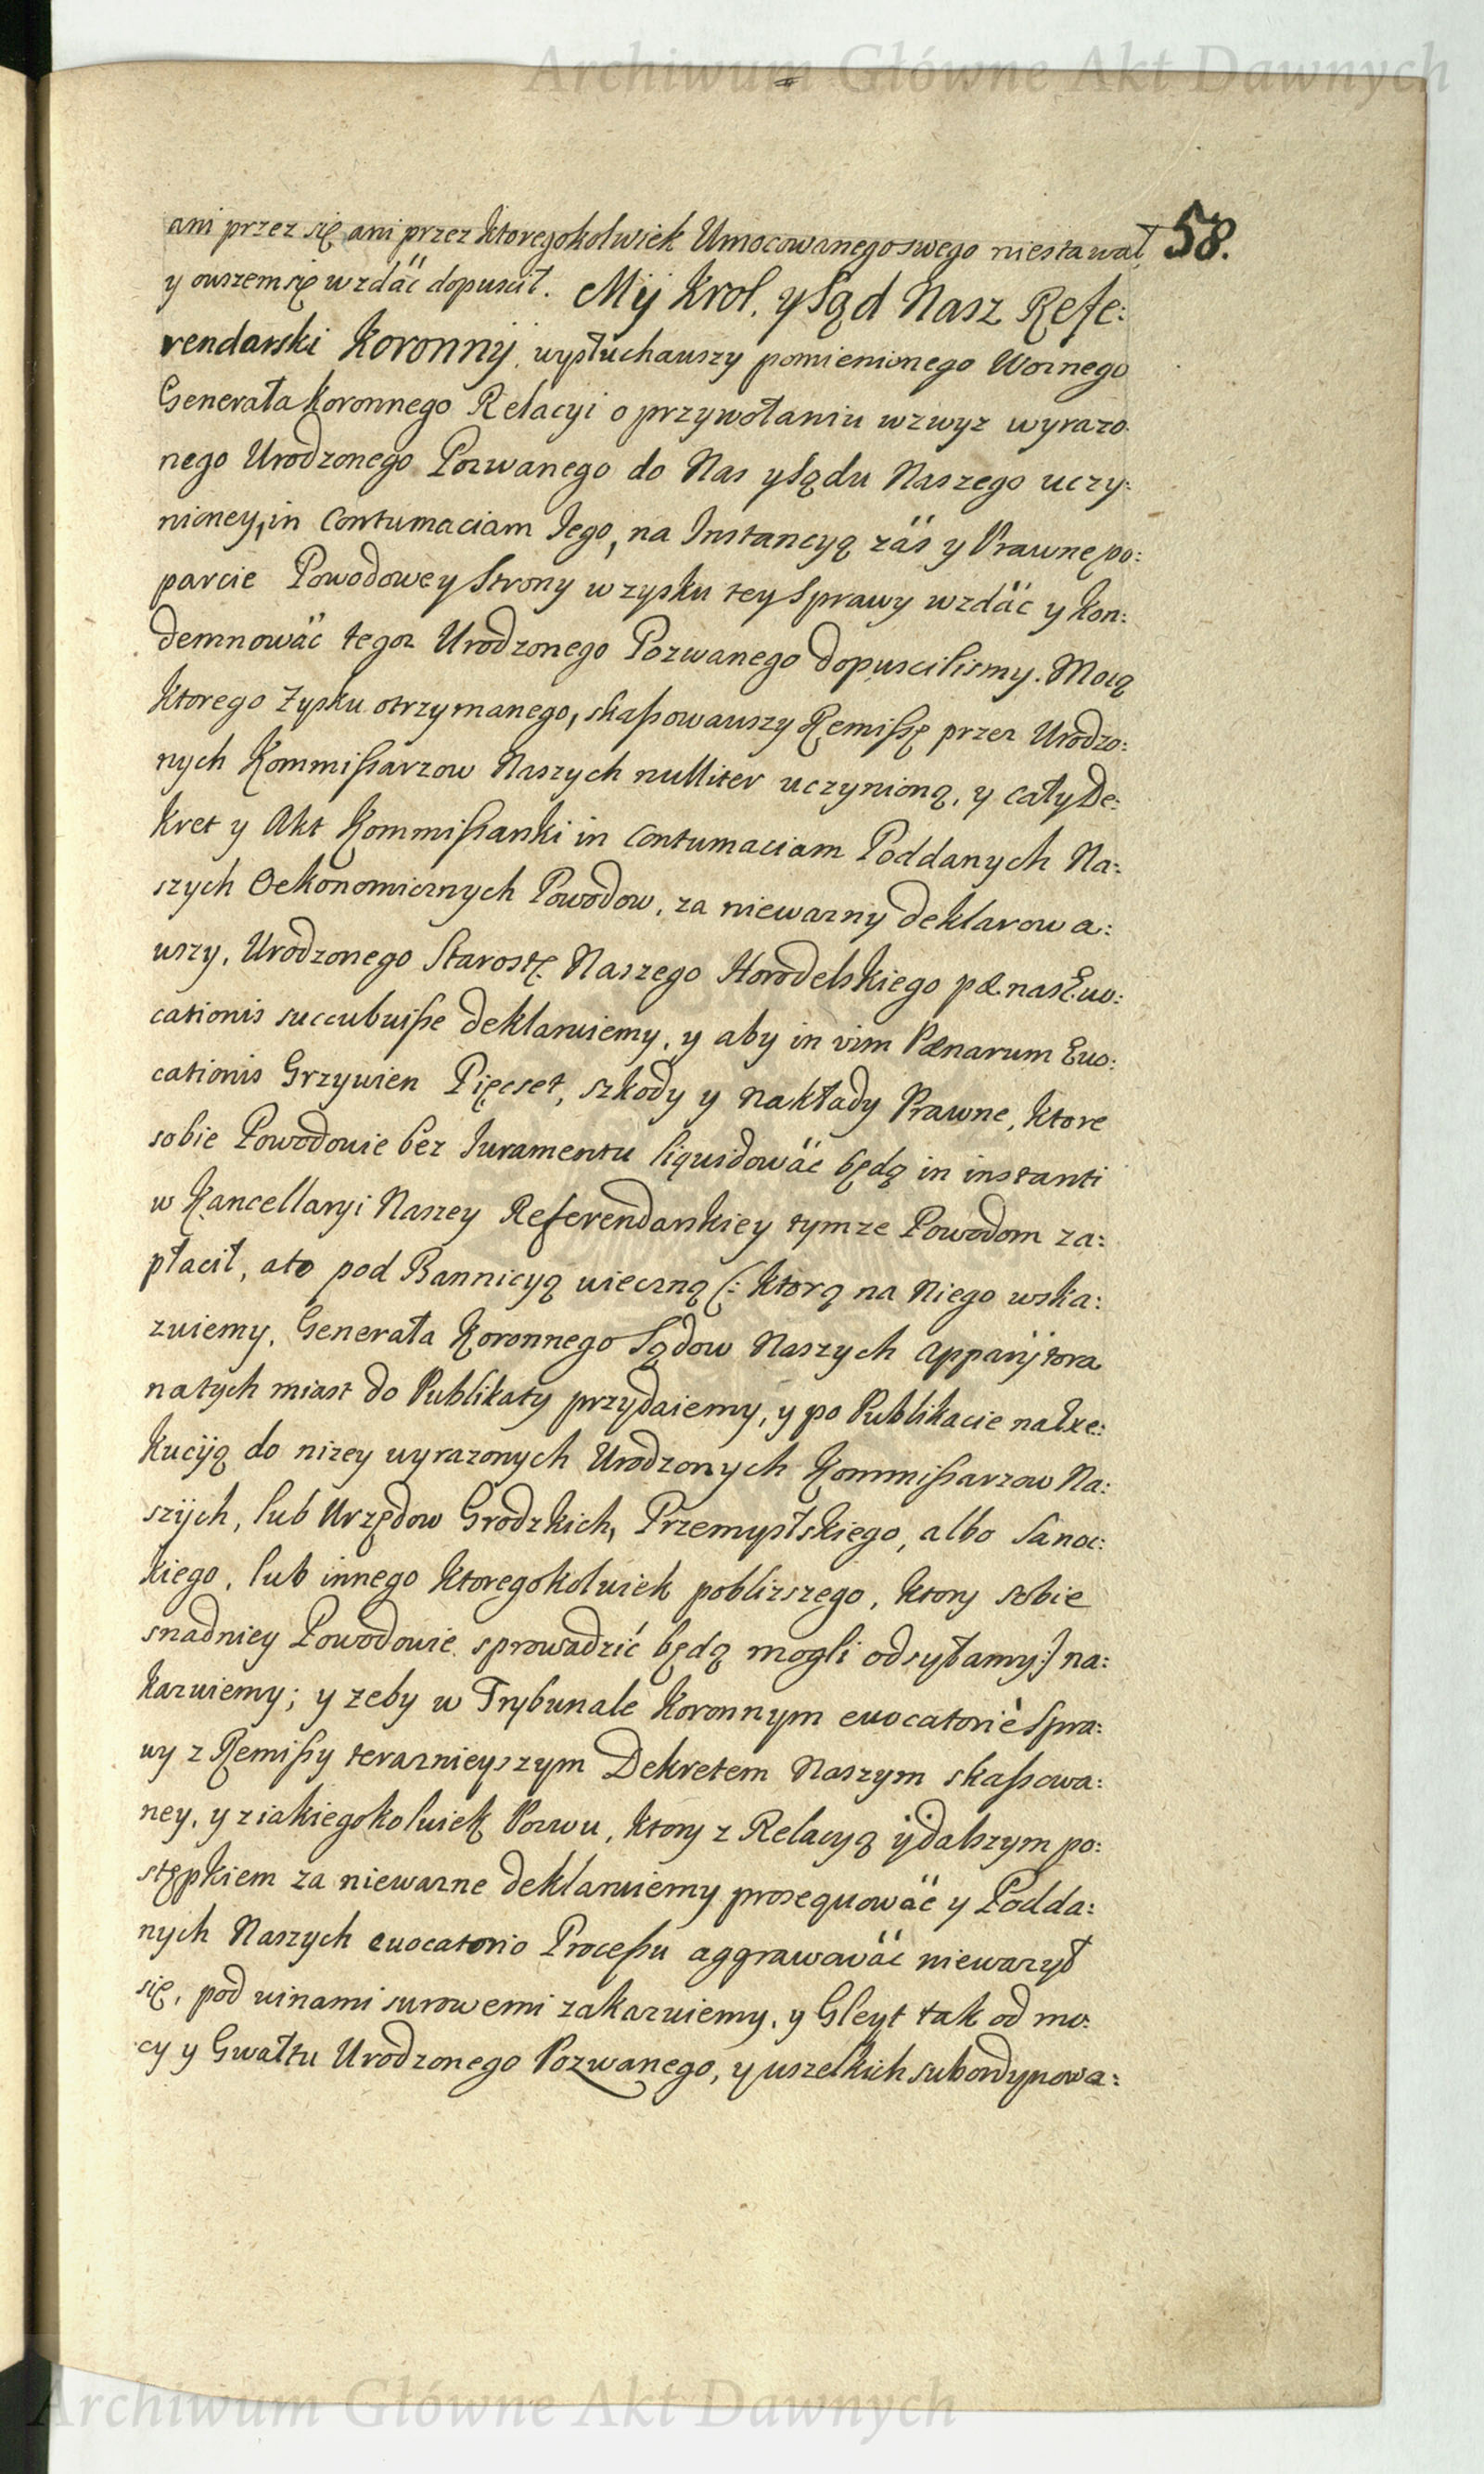 Archiwum Główne Akt Dawnych
58.
ani przez się ani przez ktoregokolwiek Umocowanego swego niestawał
y owszem się wzdäć dopuscił. My Krol, y Sąd Nasz Refe:
rendarski Koronny, wysłuchawszy pomienionego Woznego
Generała Koronnego Relacyi o przywołaniu wzwyz wyrazo
nego Urodzonego Pozwanego do Nas y Sądu Naszego uczy:
nioney, in Contumaciam Iego, na Instancyą zäs y Prawne po:
parcie Powodowey Strony w zysku tey Sprawy wzdäć y kon:
demnowäć tegoz Urodzonego Pozwanego dopuscilismy. Mocą
ktorego Zysku otrzymanego, skaßowawszy Remißę przez Urodzo:
nych Kommißarzow Naszych nulliter uczynioną, y cały De:
kret y Akt Kommißarski in Contumaciam Poddanych Na:
szych Oekonomicznych Powodow, za niewazny deklarowa:
wszy, Urodzonego Starostę Naszego Horodelskiego pænas Evo:
cationis succubuiße deklaruiemy, y aby in vim Pænarum Evo:
cationis Grzywien Pięcset, szkody y nakłady Prawne, ktore
sobie Powodowie bez Iuramentu liquidowäć będą in instanti
w Kancellaryi Naszey Referendarskiey tymze Powodom za:
płacił, ato pod Bannicyą wieczną (: ktorą na Niego wska:
zuiemy, Generała Koronnego Sądow Naszych Apparÿtora
natych miast do Publikaty przydaiemy, y po Publikacie na Exe:
kucÿą do nizey wyrazonych Urodzonych Kommißarzow Na:
szÿch, lub Urzędow Grodzkich, Przemyslskiego, albo Sanoc:
kiego, lub innego ktoregokolwiek poblizszego, ktory sobie
snadniey Powodowie sprowadzić będą mogli odsyłamy:) na:
kazuiemy; y zeby w Trybunale Koronnym evocatoriè Spra:
wy z Remißy teraznieyszym Dekretem Naszym skaßowa:
ney, y z iakiegokolwiek Pozwu, ktory z Relacyą ÿ dalszym po:
stępkiem za niewazne deklaruiemy prosequowäć y Podda:
nych Naszych evocatorio Proceßu aggrawowäć niewazył
się, pod winami surowemi zakazuiemy, y Gleyt tak od mo:
cy y Gwałtu Urodzonego Pozwanego, y wszelkich subordynowa:
Archiwum Główne Akt Dawnych